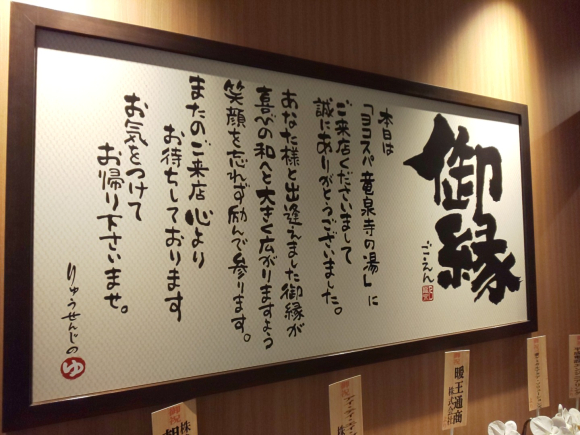 御縁
ごえん
本日は
「ヨコスパ竜泉寺の湯」に
ご来店くださいまして
誠にありがとうございました。
あなた様と出逢えました御縁が
喜びの和へと大きく広がりますよう
笑顔を忘れず励んで参ります。
またのご来店 心より
お待ちしております
お気をつけて
お帰り下さいませ。
りゅうせんじの
ゆ
暖王通商
株式会社
株